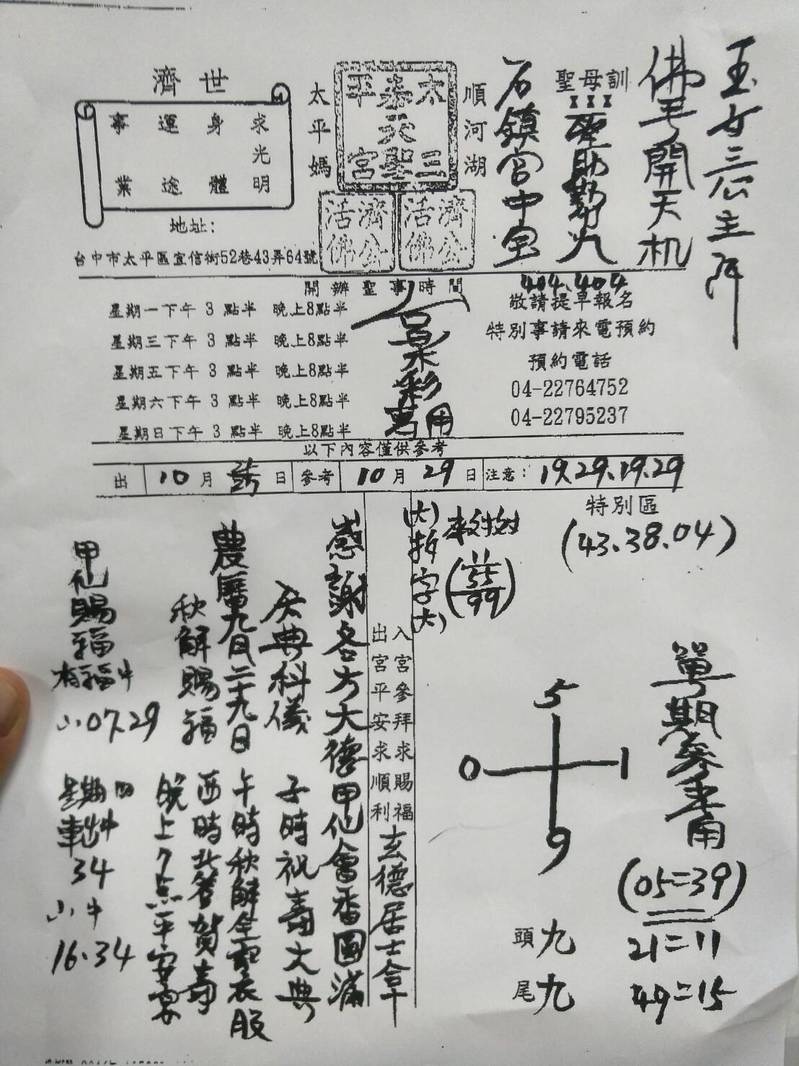 玉女三公主降
佛手開天机
聖母訓
石鎮宮中宝
順河湖
太平
泰天宮
三聖
太平媽
濟公活佛
濟公活佛
濟世
求光明
身體
運途
事業
地址:
台中市太平區宜信街52巷43弄64號
開辦聖事時間
404.404
星期一下午 3 點半 晚上8點半
星期三下午 3 點半 晚上8點半
星期五下午 3 點半 晚上8點半
星期六下午 3 點半 晚上8點半
星期日下午 3 點半 晚上8點半
彩
萬用
敬請提早報名
特別事請來電預約
預約電話
04-22764752
04-22795237
以下內容僅供參考
出 10 月 日 參考 10 月 29 日 注意: 19.29.19.29
特別區
(43.38.04)
(大)拆字(大)
55
99
入宮參拜求賜福
出宮平安求順利
玄德居士拿
感謝各方大德甲仙會香圓滿
庆典科儀 子時祝壽大典
農曆九月二十九日 午時秋解
秋解賜福 酉時 賀壽
晚上7点平安宴
甲仙賜福
有福
小07.29
星期四
34
小牛
16.34
5
0 1
9
頭九
尾九
單期參考用
(05=39)
21=11
49=15